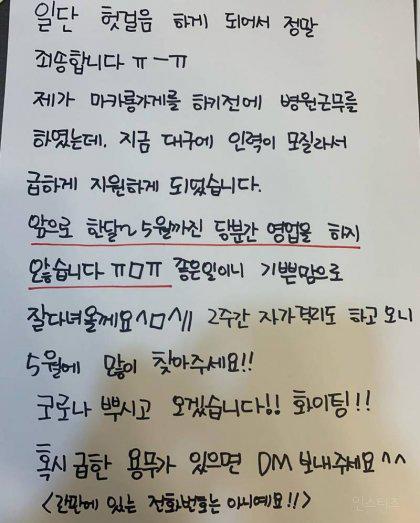 일단 헛걸음 하게 되어서 정말
죄송합니다 ㅠㅡㅠ
제가 마카롱가게를 하기전에 병원근무를
하였는데, 지금 대구에 인력이 모질라서
급하게 지원하게 되었습니다.
앞으로 한달~5월까진 당분간 영업을 하지
않습니다 ㅠㅁㅠ 좋은일이니 기쁜맘으로
잘다녀올께요^ㅁ^!! 2주간 자가격리도 하고 오니
5월에 많이 찾아주세요!!
코로나 뿌시고 오겠습니다!! 화이팅!!
혹시 급한 용무가 있으면 DM 보내주세요^^
<간판에 있는 전화번호는 아니예요!!>
인스티즈